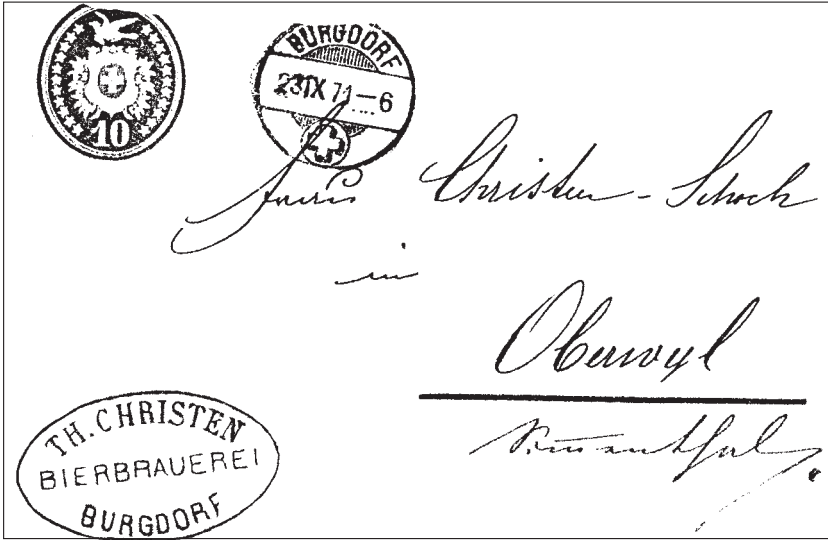 10
BURGDORF
23 IX 71—6
Christen-Schoch
in
Oberwyl
Simmenthal.
TH. CHRISTEN
BIERBRAUEREI
BURGDORF